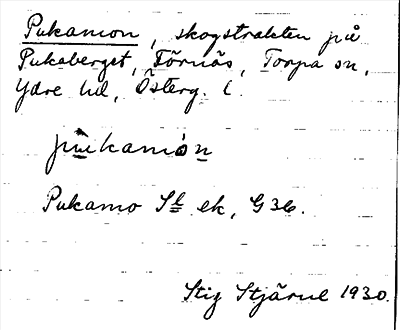 Pukamon, skogstrakten på
Pukaberget, Förnäs, Torpa sn,
Ydre hd, Österg. l.
pùkamón
Pukamo Sk ek, G36.
Stig Stjärne 1930.